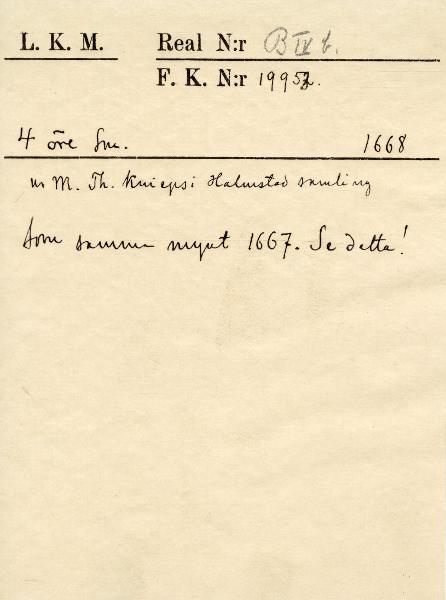 L. K. M. Real N:r B IV b.
F. K. N:r 19952.
4 öre Sm. 1668
ur M. Th. Kniepsi Halmstad samling
Som samma mynt 1667. Se detta!